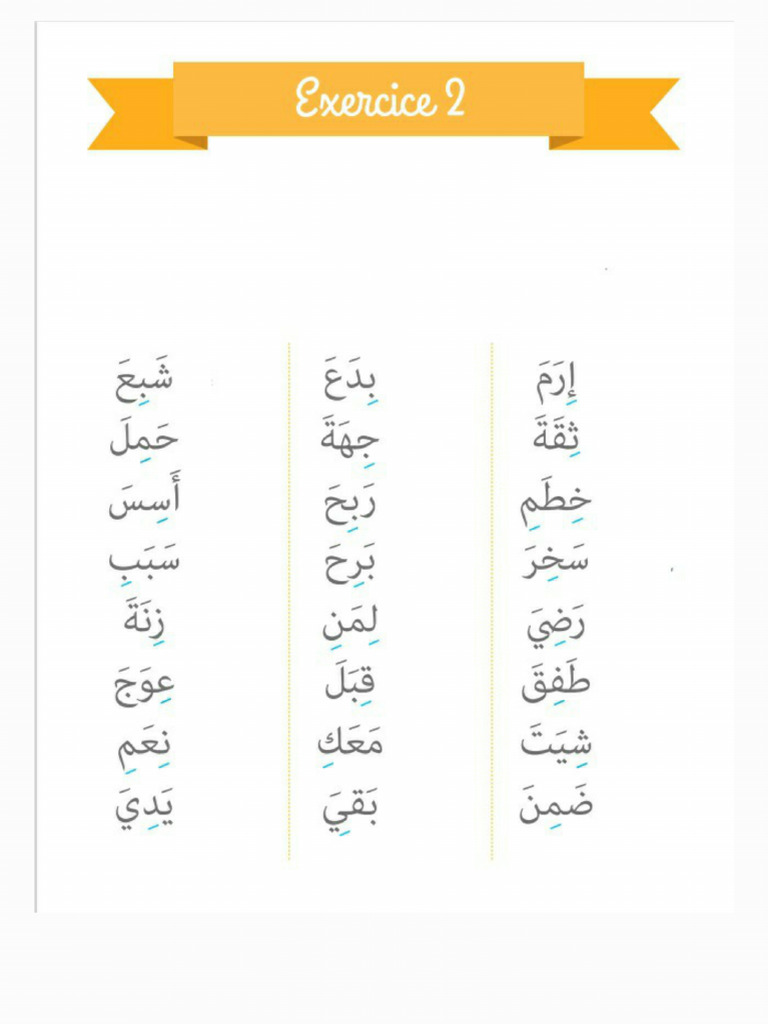 Exercice 2
إِرَمَ بِدَعَ شَبِعَ
ثِقَةَ جِهَةَ حَمِلَ
خِطَمِ رَبِحَ أَسِسَ
سَخِرَ بَرِحَ سَبَبِ
رَضِيَ لِمَنِ زِنَةَ
طَفِقَ قِبَلَ عِوَجَ
شِيَتَ مَعَكِ نِعَمِ
ضَمِنَ بَقِيَ يَدِيَ